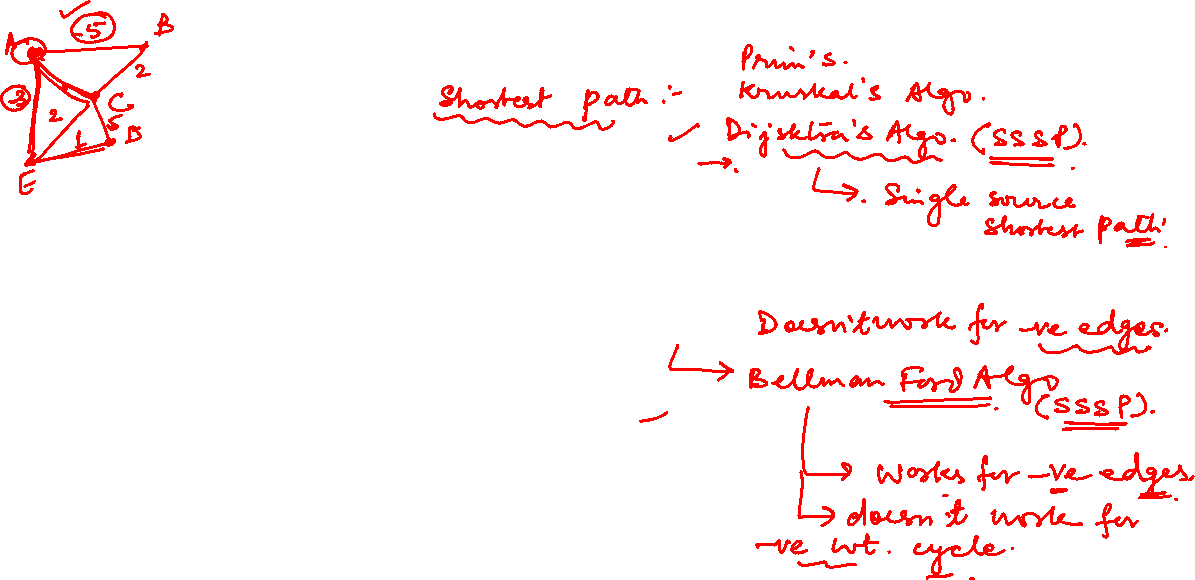 A
-5
B
2
C
-3
2
5
D
1
E
Shortest path :-
Prim's.
Kruskal's Algo.
Dijsktra's Algo. (SSSP).
Single source
shortest path.
Doesn't work for -ve edges.
Bellman Ford Algo
(SSSP).
Works for -ve edges.
doesn't work for
-ve wt. cycle.